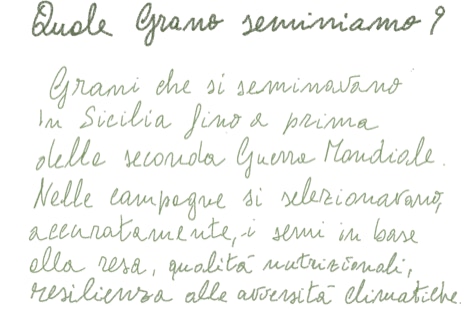 Quale Grano seminiamo?
Grani che si seminavano
in Sicilia fino a prima
della seconda Guerra Mondiale.
Nelle campagne si selezionavano,
accuratamente, i semi in base
alla resa, qualità nutrizionali,
resilienza alle avversità climatiche.